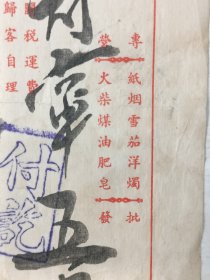 專營
紙烟雪茄洋燭
火柴煤油肥皂
批發
稅運費
歸客自理
五
付訖